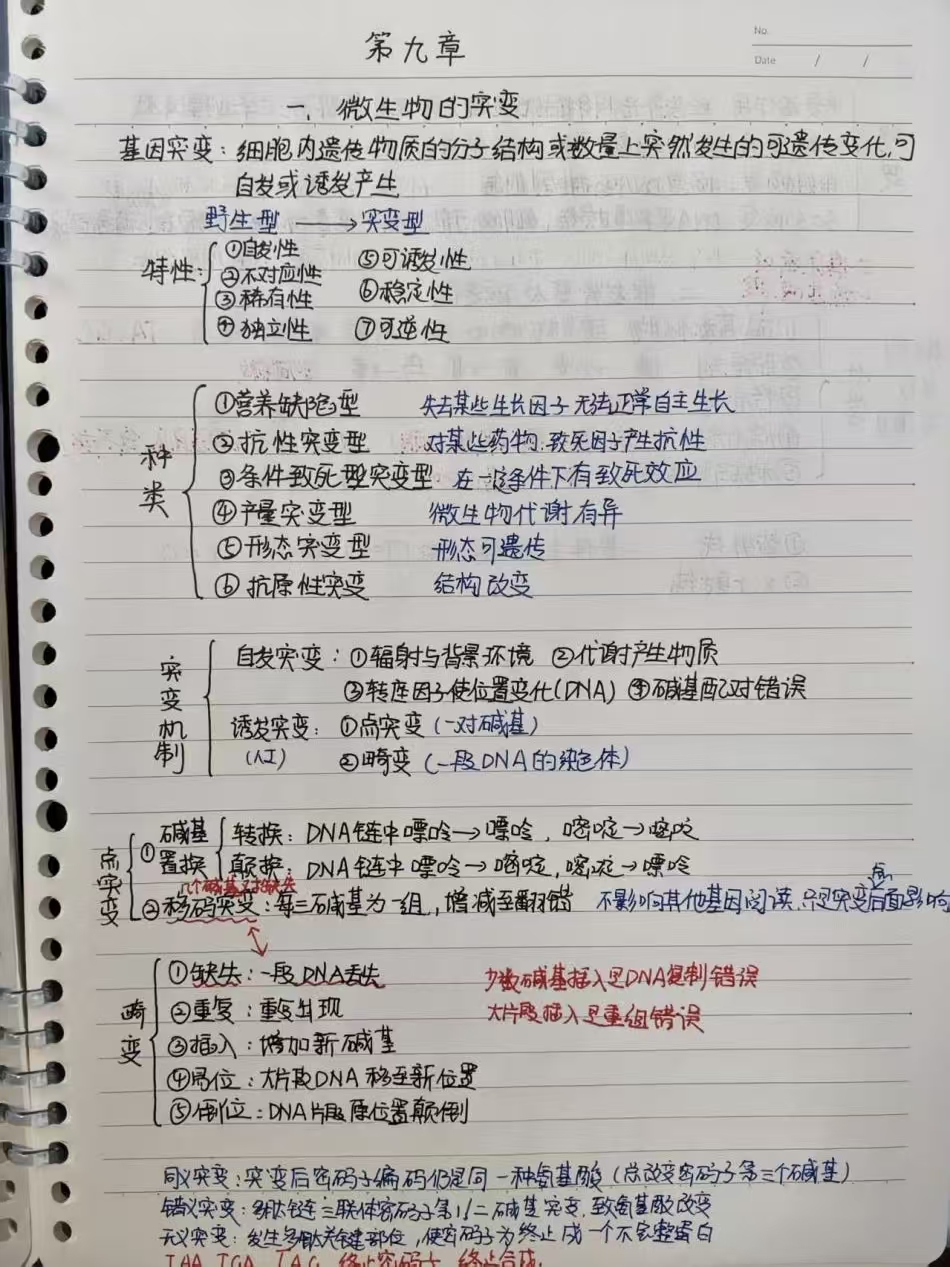 第九章
No.
Date / /
一. 微生物的突变
基因突变：细胞内遗传物质的分子结构或数量上突然发生的可遗传变化,可
自发或诱发产生
野生型 → 突变型
特性：
①自发性 ⑤可诱发性
②不对应性 ⑥稳定性
③稀有性 ⑦可逆性
④独立性
种类
①营养缺陷型 失去某些生长因子无法正常自主生长
②抗性突变型 对某些药物.致死因子产生抗性
③条件致死型突变型 在一定条件下有致死效应
④产量突变型 微生物代谢有异
⑤形态突变型 形态可遗传
⑥抗原性突变 结构改变
突变机制
自发突变：①辐射与背景环境 ②代谢产生物质
③转座因子使位置变化(DNA) ④碱基配对错误
诱发突变：①点突变(一对碱基)
(人工) ②畸变(一段DNA的染色体)
点突变
①碱基置换
转换：DNA链中嘌呤→嘌呤，嘧啶→嘧啶
颠换：DNA链中嘌呤→嘧啶,嘧啶→嘌呤
几个碱基对缺失
②移码突变：每三碱基为一组,增减至翻错 不影响其他基因阅读,只是突变后面影响
畸变
①缺失：一段DNA丢失 少数碱基插入是DNA复制错误
②重复：重复出现 大片段插入是重组错误
③插入：增加新碱基
④易位：大片段DNA移至新位置
⑤倒位：DNA片段原位置颠倒
同义突变：突变后密码子编码仍是同一种氨基酸(总改变密码子第三个碱基)
错义突变：多肽链三联体密码子第1/二碱基突变,致氨基酸改变
无义突变：发生多肽关键部位,使密码子为终止成一个不完整蛋白
TAA TGA TAG 终止密码子 终止合成.